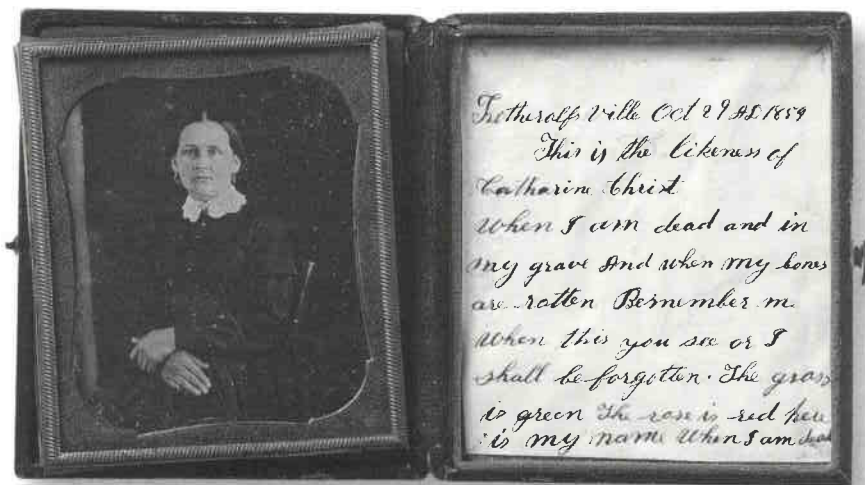 Fretherolfs Ville Oct 29 AD 1859
This is the likeness of
Catharine Christ
When I am dead and in
my grave And when my bones
are rotten Bemember m
When this you see or I
shall be forgotten. The grass
is green The rose is red here
is my name When I am dead